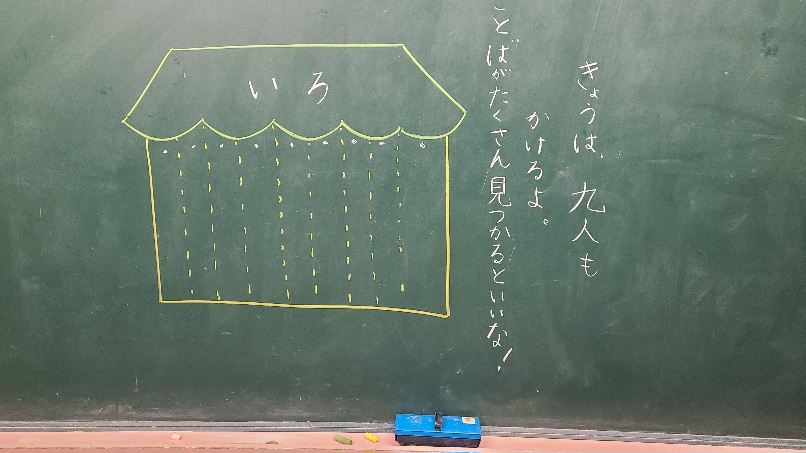 きょうは、九人も
かけるよ。
ことばがたくさん見つかるといいな!
いろ